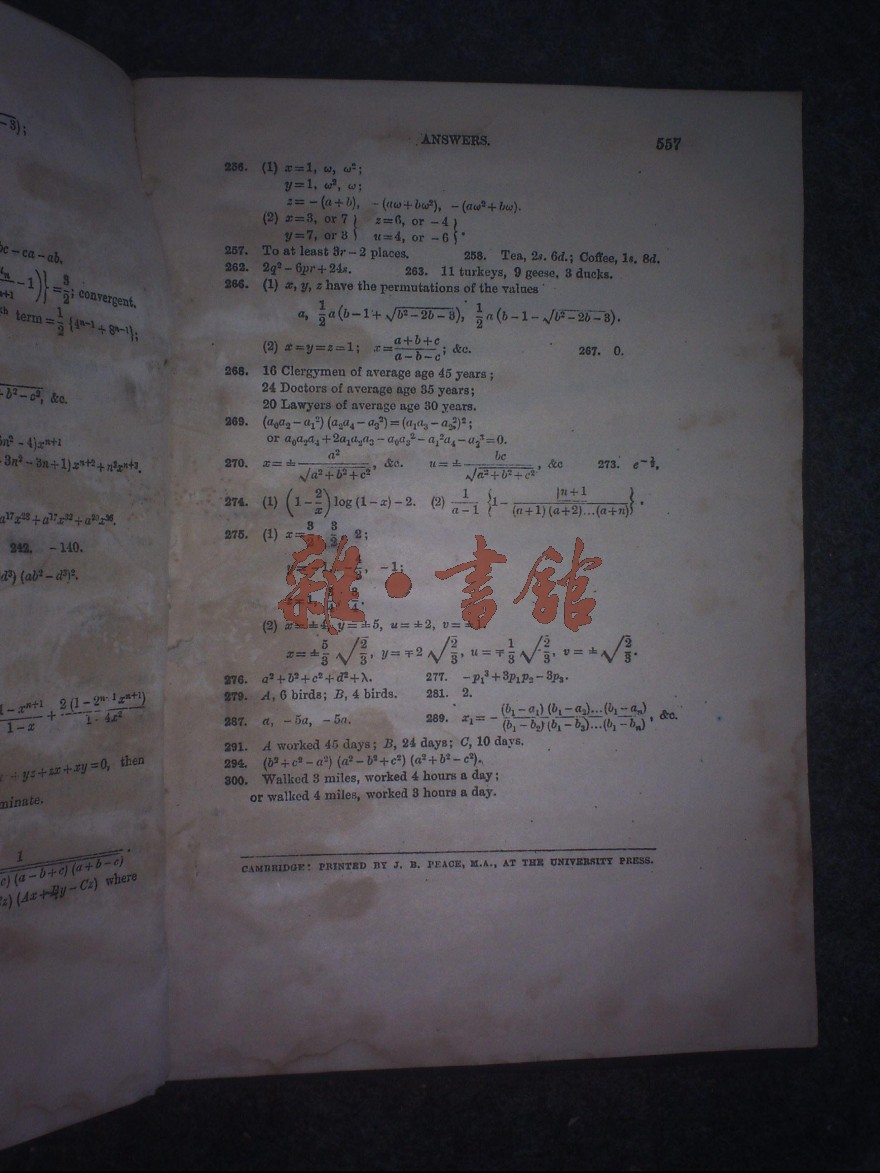 - 3);
bc - ca - ab.
= 3/2; convergent.
th term = 1/2 {4ⁿ⁻¹ + 8ⁿ⁻¹};
+ b² - c², &c.
n² - 4)xⁿ⁺¹
+ 3n² - 3n + 1)xⁿ⁺² + n³xⁿ⁺³.
242. - 140.
d³) (ab² - d³)².
+ yz + zx + xy = 0, then
minate.
c) (a - b + c) (a + b - c)
(Ax + By - Cz) where
ANSWERS. 557
256. (1) x = 1, ω, ω²;
y = 1, ω², ω;
z = - (a + b), - (aω + bω²), - (aω² + bω).
(2) x = 3, or 7 } z = 6, or - 4 }
y = 7, or 3 } u = 4, or - 6 } .
257. To at least 3r - 2 places. 258. Tea, 2s. 6d.; Coffee, 1s. 8d.
262. 2q² - 6pr + 24s. 263. 11 turkeys, 9 geese, 3 ducks.
266. (1) x, y, z have the permutations of the values
a, 1/2 a (b - 1 + √(b² - 2b - 3)), 1/2 a (b - 1 - √(b² - 2b - 3)).
(2) x = y = z = 1; x = (a + b + c)/(a - b - c); &c. 267. 0.
268. 16 Clergymen of average age 45 years;
24 Doctors of average age 35 years;
20 Lawyers of average age 30 years.
269. (a₀a₂ - a₁²) (a₂a₄ - a₃²) = (a₁a₃ - a₂²)²;
or a₀a₂a₄ + 2a₁a₂a₃ - a₀a₃² - a₁²a₄ - a₂³ = 0.
270. x = ± a²/√(a² + b² + c²), &c. u = ± bc/√(a² + b² + c²), &c 273. e
274. (1) (1 - 2/x) log (1 - x) - 2. (2) 1/(a - 1) {1 - |n + 1/((a + 1) (a + 2)...(a + n))} .
275. (1) x = 3/2, 3/2, 2;
- 1;
雜·書館
(2) x = ± 4, y = ± 5, u = ± 2, v = ± 1.
x = ± 5/3 √(2/3), y = ∓ 2 √(2/3), u = ∓ 1/3 √(2/3), v = ± √(2/3).
276. a² + b² + c² + d² + λ. 277. - p₁³ + 3p₁p₂ - 3p₃.
279. A, 6 birds; B, 4 birds. 281. 2.
287. a, - 5a, - 5a. 289. x₁ = - ((b₁ - a₁) (b₁ - a₂)...(b₁ - aₙ))/((b₁ - b₂) (b₁ - b₃)...(b₁ - bₙ)), &c.
291. A worked 45 days; B, 24 days; C, 10 days.
294. (b² + c² - a²) (a² - b² + c²) (a² + b² - c²).
300. Walked 3 miles, worked 4 hours a day;
or walked 4 miles, worked 3 hours a day.
CAMBRIDGE: PRINTED BY J. B. PEACE, M.A., AT THE UNIVERSITY PRESS.